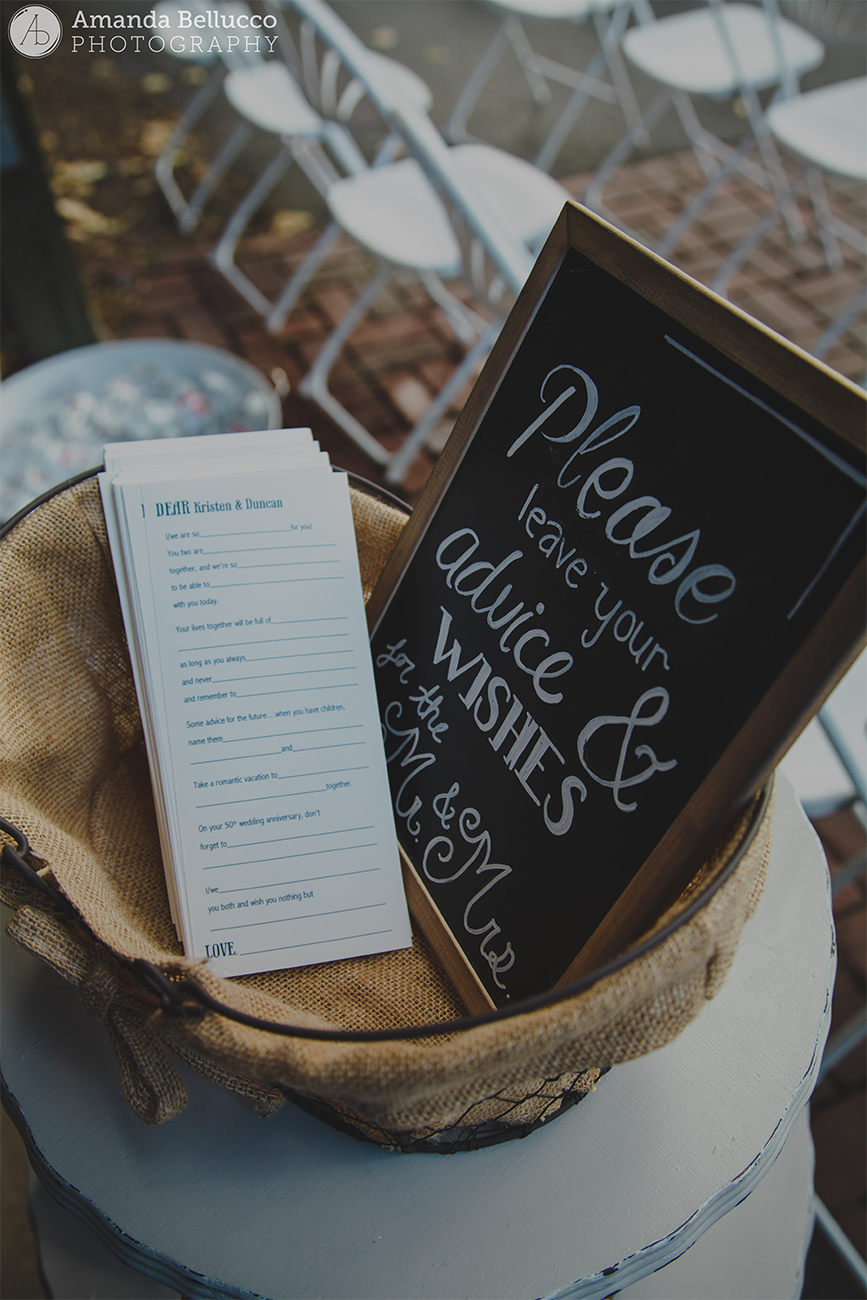 Amanda Bellucco
PHOTOGRAPHY
DEAR Kristen & Duncan
I/we are so____________________for you!
You two are____________________
together, and we're so____________________
to be able to____________________
with you today.
Your lives together will be full of____________________
____________________
as long as you always____________________
and never____________________
and remember to____________________
Some advice for the future...when you have children,
name them____________________
____________________and____________________
Take a romantic vacation to____________________
____________________together.
On your 50th wedding anniversary, don't
forget to____________________
____________________
I/we____________________
you both and wish you nothing but
____________________
LOVE,____________________
Please
leave your
advice &
WISHES
for the
Mr. & Mrs.